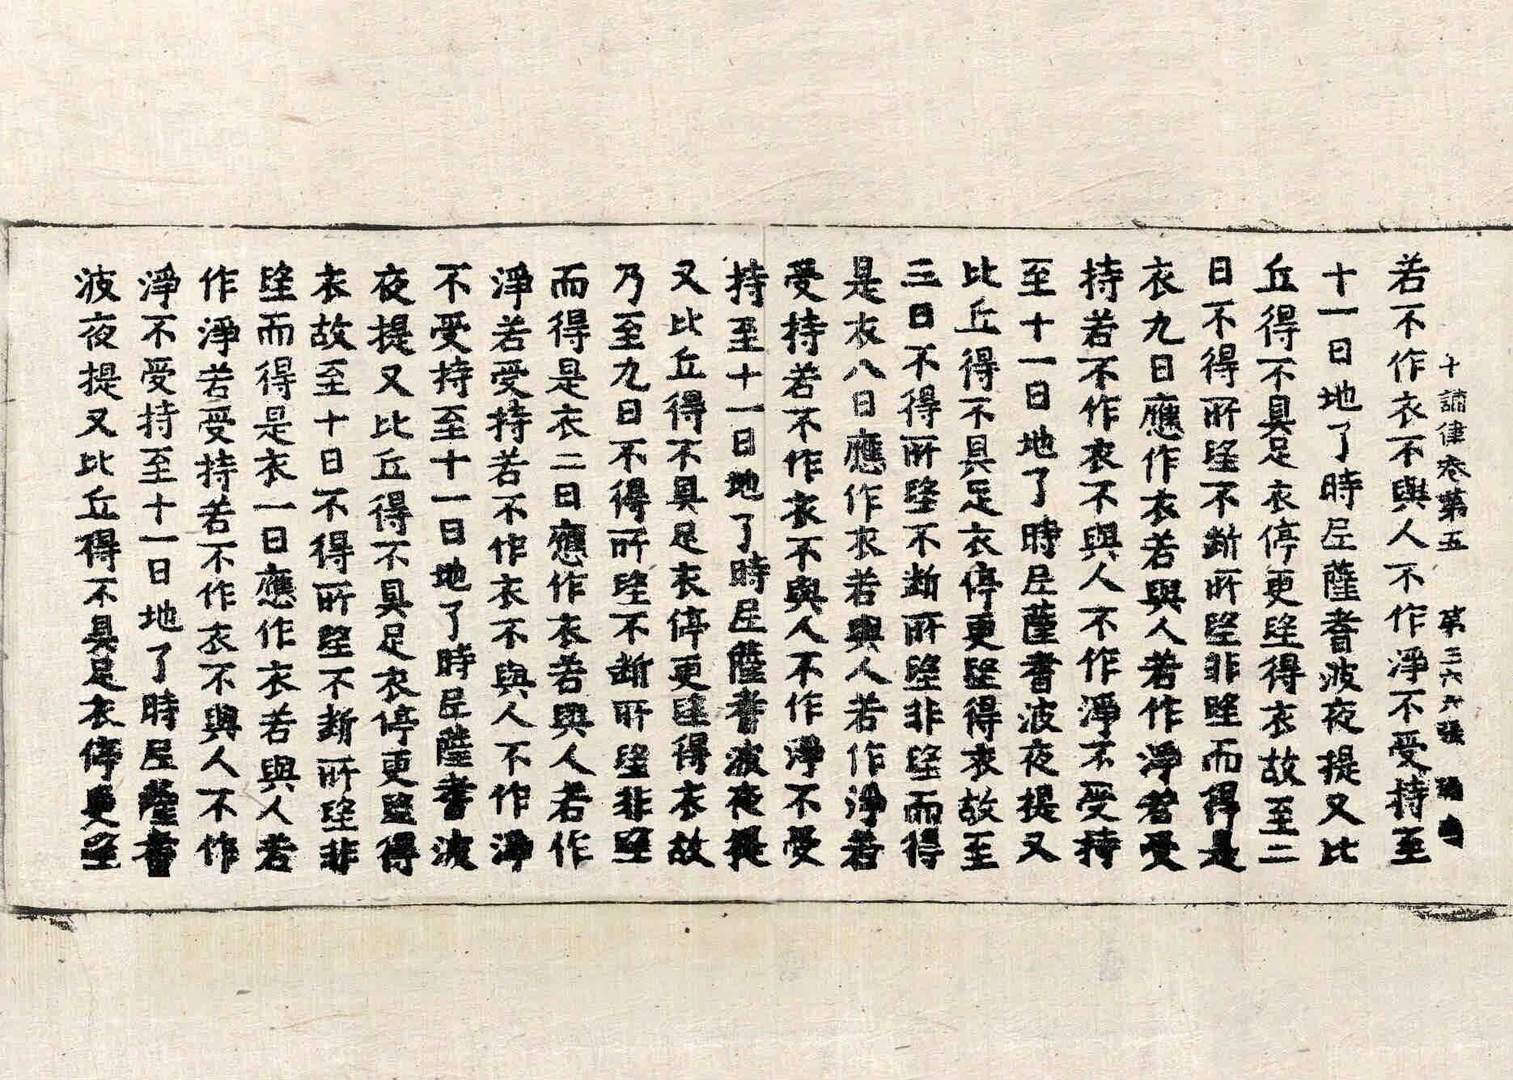 十誦律卷第五 第三六張
若不作衣不與人不作淨不受持至
十一日地了時尼薩耆波夜提又比
丘得不具足衣停更望得衣故至二
日不得所望不斷所望非望而得是
衣九日應作衣若與人若作淨若受
持若不作衣不與人不作淨不受持
至十一日地了時尼薩耆波夜提又
比丘得不具足衣停更望得衣故至
三日不得所望不斷所望非望而得
是衣八日應作衣若與人若作淨若
受持若不作衣不與人不作淨不受
持至十一日地了時尼薩耆波夜提
又比丘得不具足衣停更望得衣故
乃至九日不得所望不斷所望非望
而得是衣二日應作衣若與人若作
淨若受持若不作衣不與人不作淨
不受持至十一日地了時尼薩耆波
夜提又比丘得不具足衣停更望得
衣故至十日不得所望不斷所望非
望而得是衣一日應作衣若與人若
作淨若受持若不作衣不與人不作
淨不受持至十一日地了時尼薩耆
波夜提又比丘得不具足衣停更望